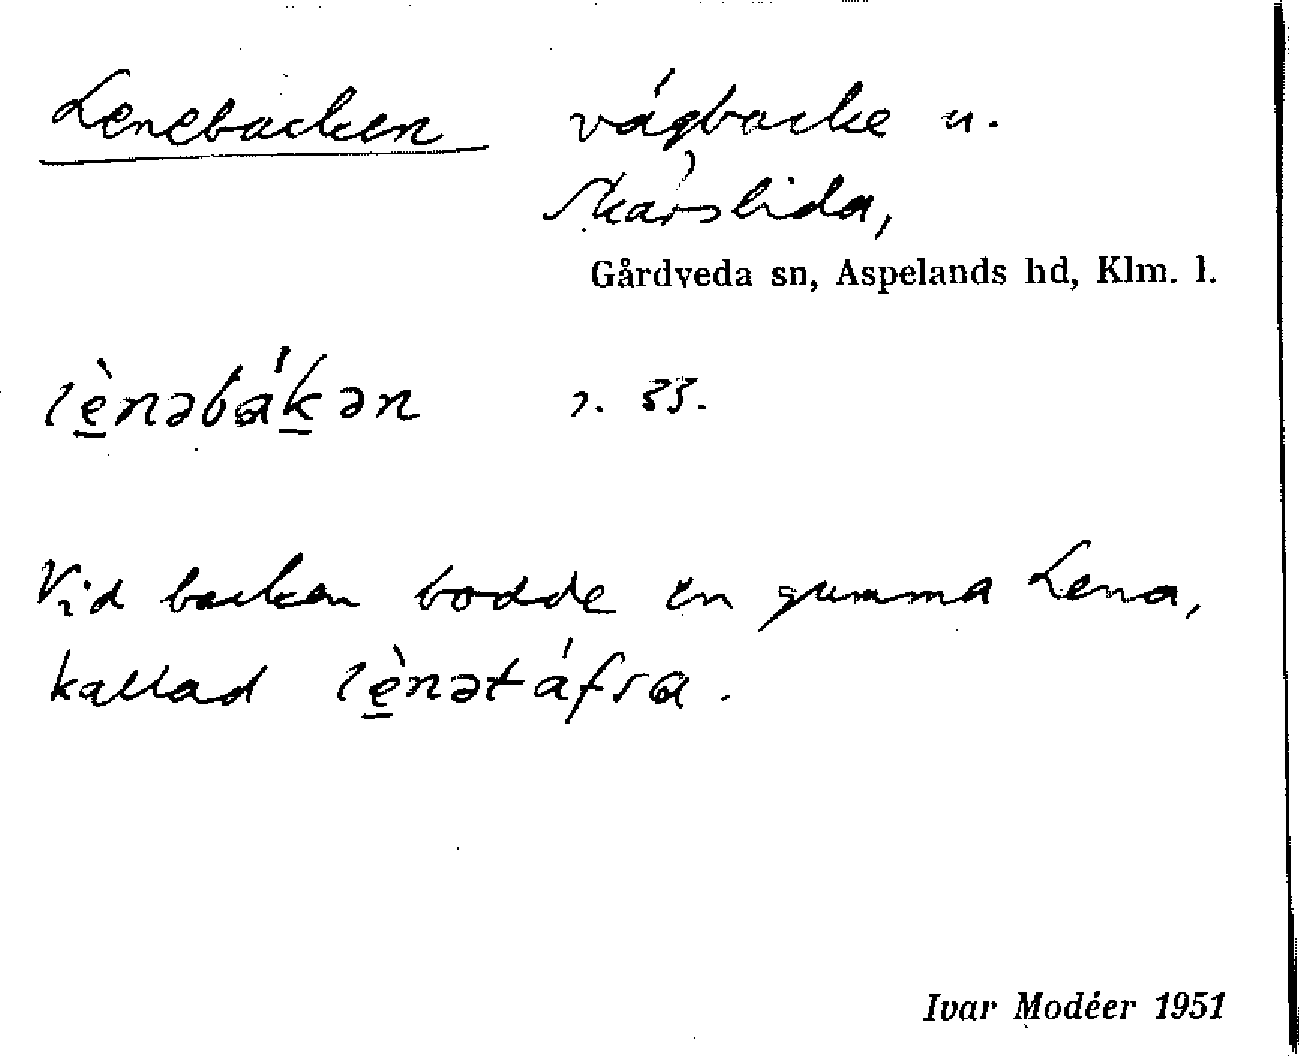 Lenebacken vägbacke u.
Skärslida,
Gårdveda sn, Aspelands hd, Klm. l.
lènəbákən 33.
Vid backen bodde en gumma Lena,
kallad lènətáfsa.
Ivar Modéer 1951